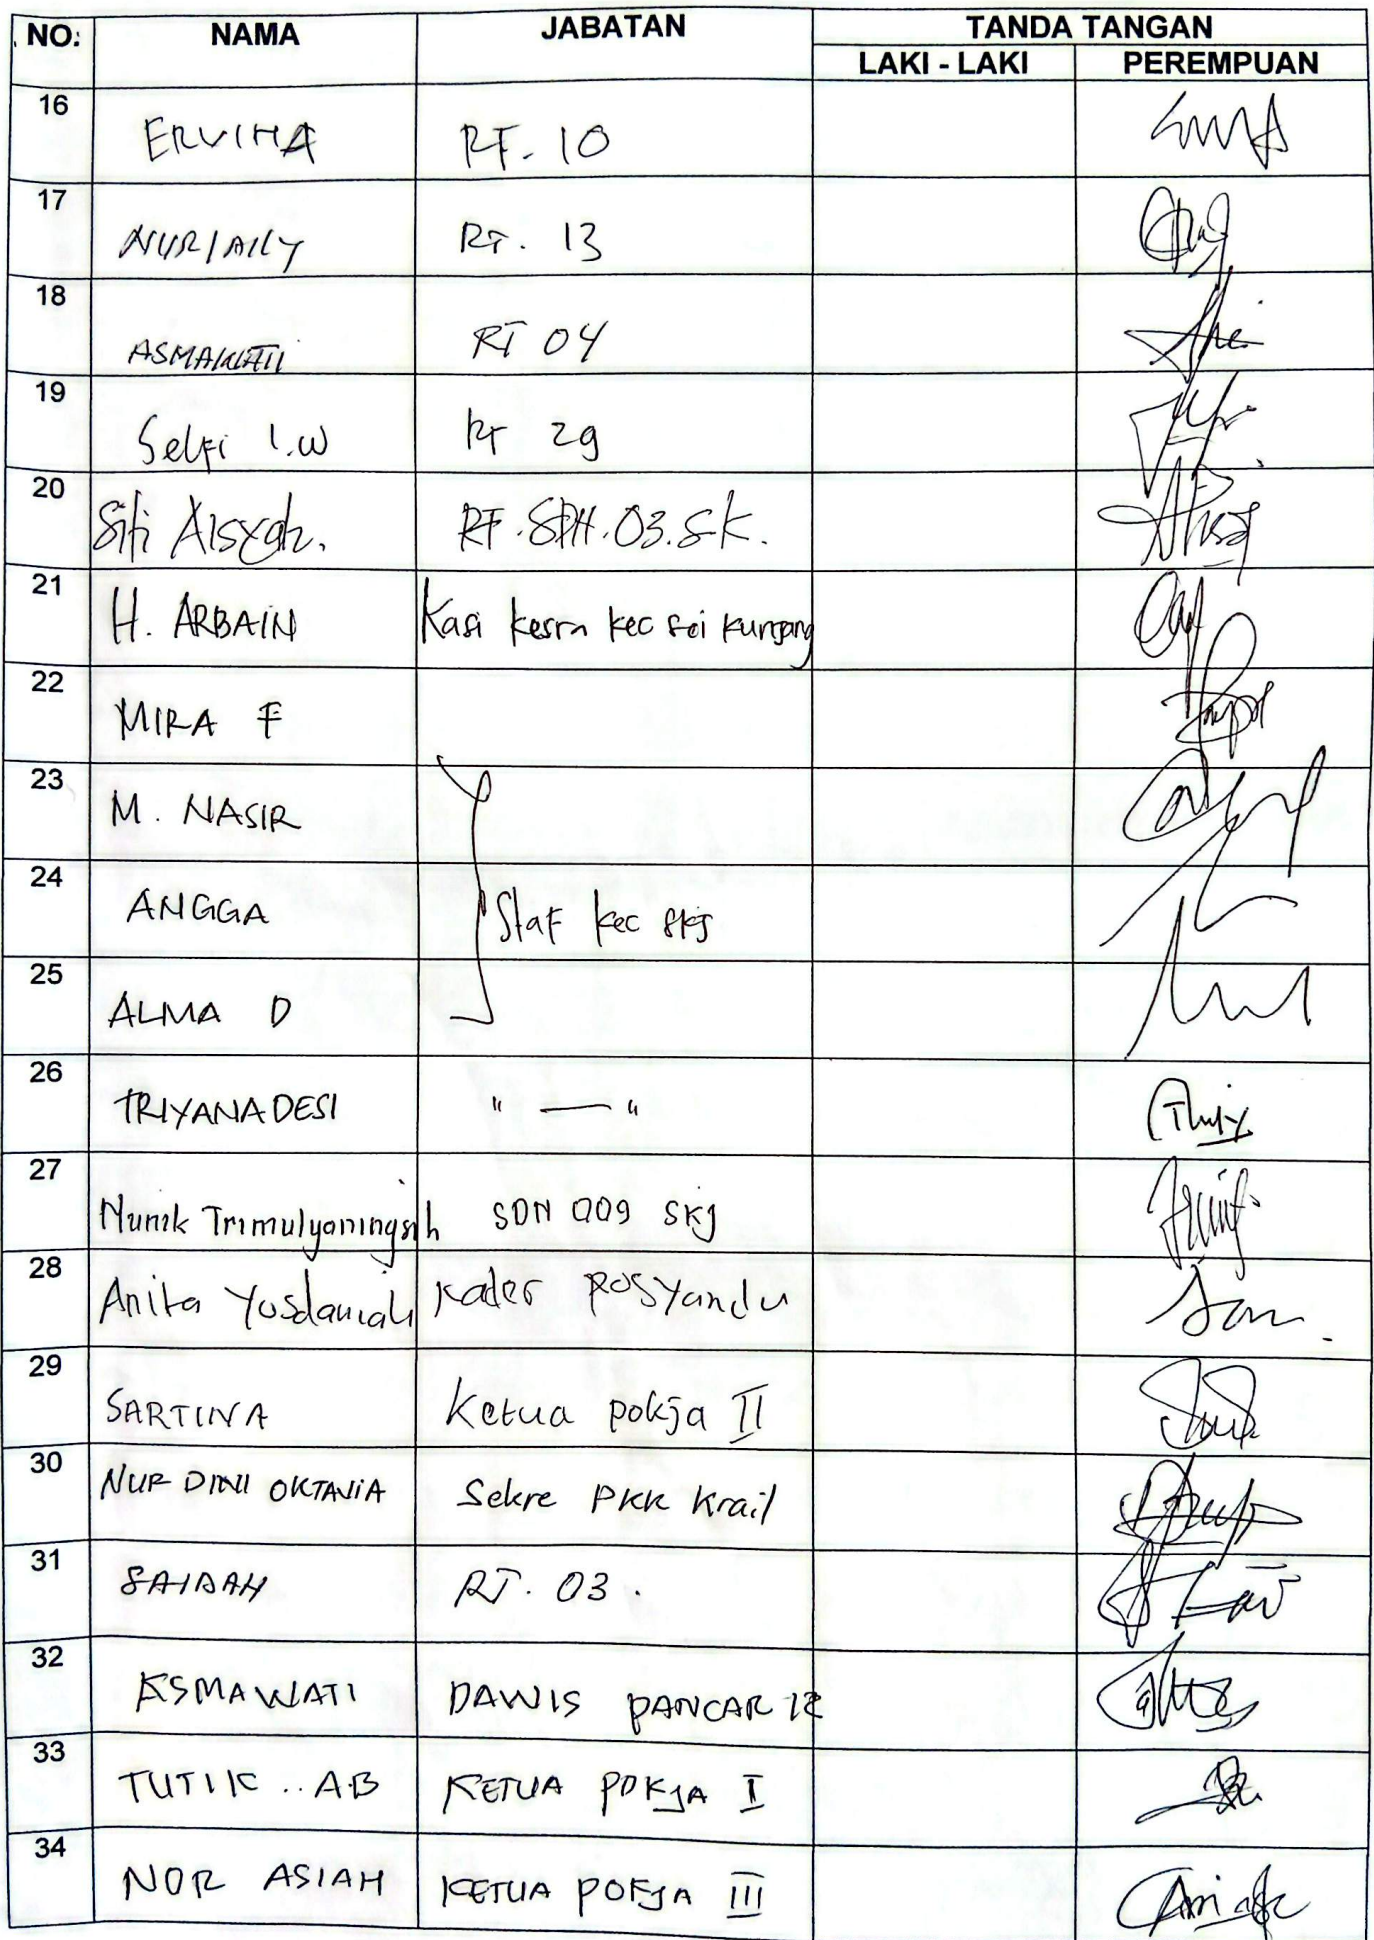 NO. NAMA JABATAN TANDA TANGAN
LAKI - LAKI PEREMPUAN
16 ERVINA RT. 10
17 RT. 13
18 ASMAWATI RT 04
19 Selfi I.W RT 29
20 Siti Aisyah. RT. SPH.03.SK.
21 H. ARBAIN Kasi kesra kec sei kunjang
22 MIRA F
23 M. NASIR
24 ANGGA Staf kec skj
25 ALMA D
26 TRIYANA DESI " — "
27 Nunik Trimulyaningsih SDN 009 SKJ
28 Anita Yusdaniah Kader Posyandu
29 SARTINA Ketua pokja II
30 NUR DINI OKTAVIA Sekre PKK Krail
31 SAIDAH RT. 03.
32 ASMAWATI DAWIS PANCAR 12
33 TUTIK .. AB KETUA POKJA I
34 NOR ASIAH KETUA POKJA III